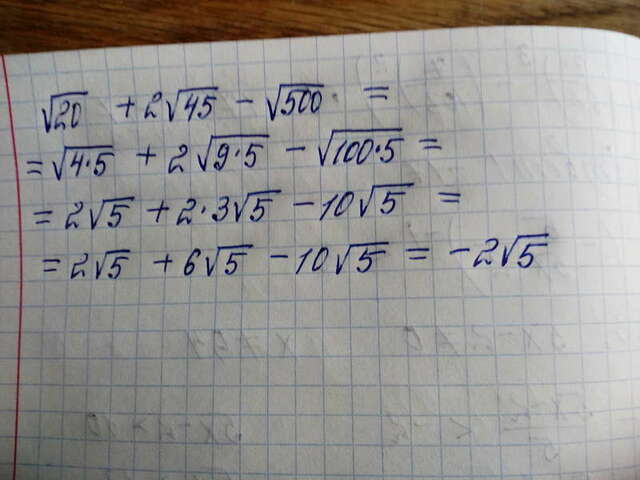 √20 + 2√45 - √500 =
= √4·5 + 2√9·5 - √100·5 =
= 2√5 + 2·3√5 - 10√5 =
= 2√5 + 6√5 - 10√5 = -2√5